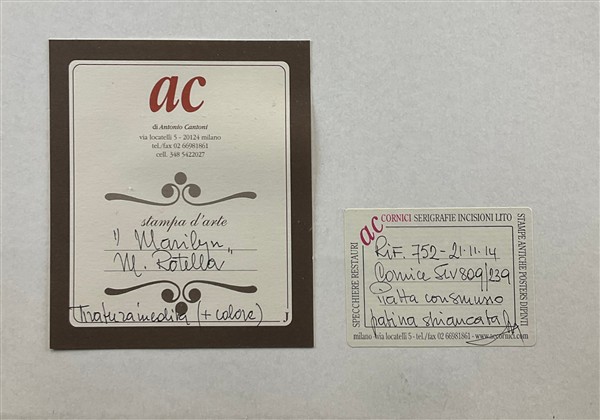 ac
di Antonio Cantoni
via locatelli 5 - 20124 milano
tel./fax 02 66981861
cell. 348 5422027
stampa d'arte
" Marilyn "
M. Rotella
(+ colore)
J
ac CORNICI SERIGRAFIE INCISIONI LITO
STAMPE ANTICHE POSTERS DIPINTI
SPECCHIERE RESTAURI
Rif. 752 - 21.11.14
Cornice SLV 809/239
Piatta con smusso
patina sbiancata
milano via locatelli 5 - tel./fax 02 66981861 - www.accornici.com